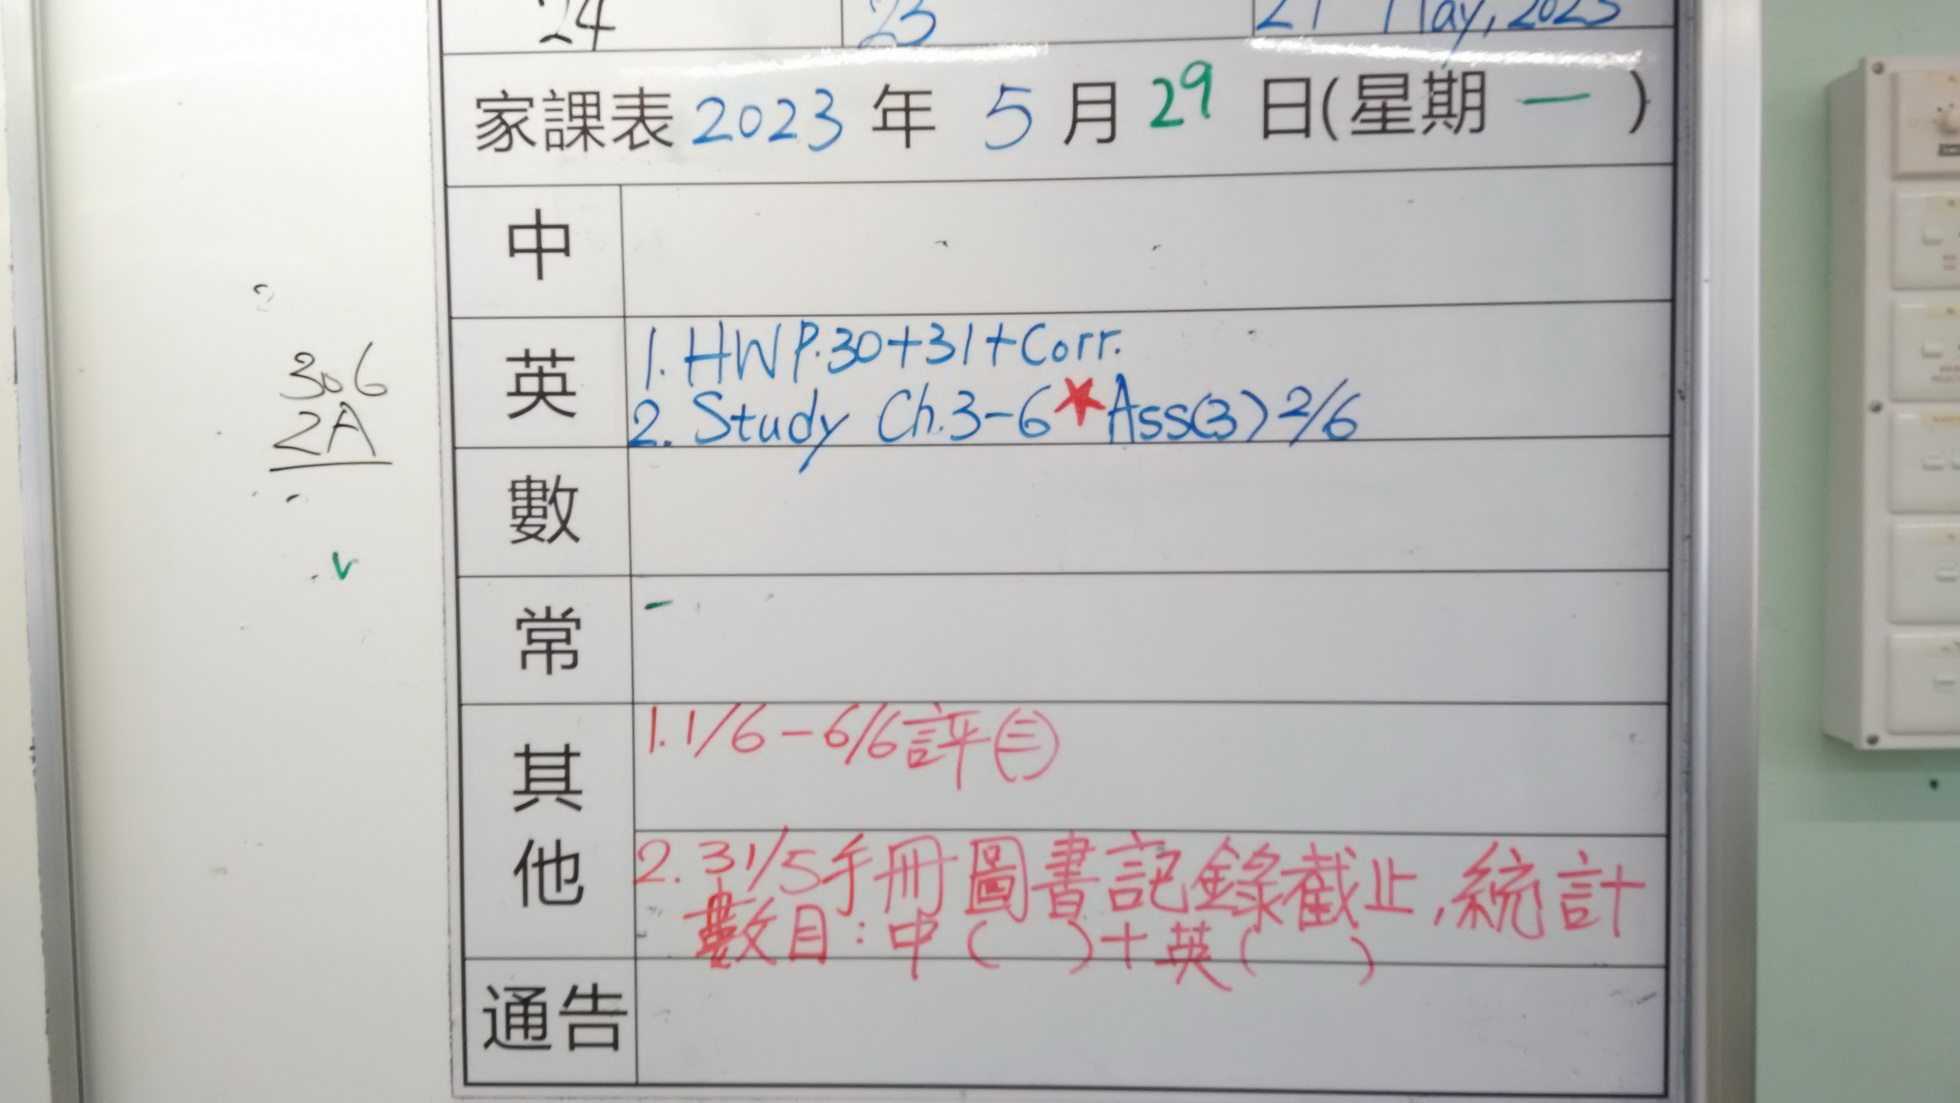 24 23
家課表 2023 年 5 月 29 日(星期 一 )
中
英 1. HW P.30+31+Corr.
2. Study Ch.3-6 ★ Ass(3) 2/6
數
常
其他 1. 1/6-6/6 評(三)
2. 31/5 手冊圖書記錄截止,統計
數目:中( )+英( )
通告
306
2A